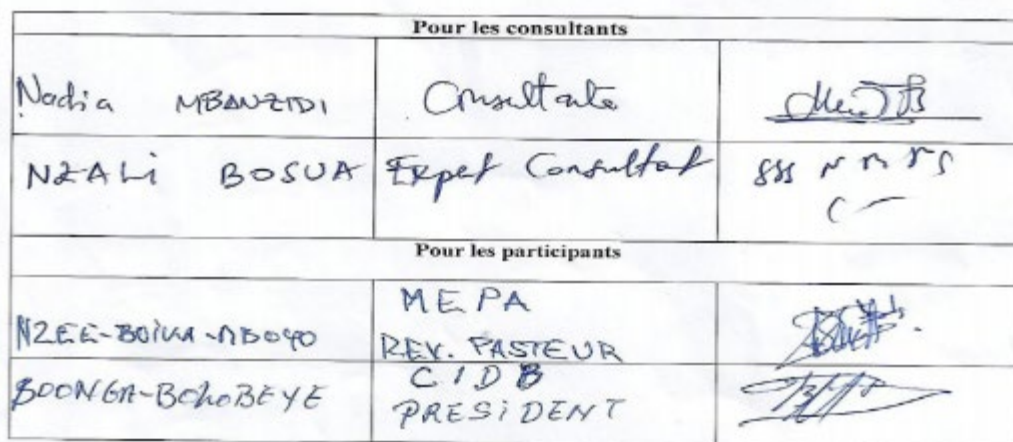 Pour les consultants
Nadia MBANZIDI Consultante
NZALi BOSUA Expet Consultat
Pour les participants
MEPA
NZEE-BOIKA-MBOYO REV. PASTEUR
CIDB
BOONGA-BOLOBEYE PRESiDENT